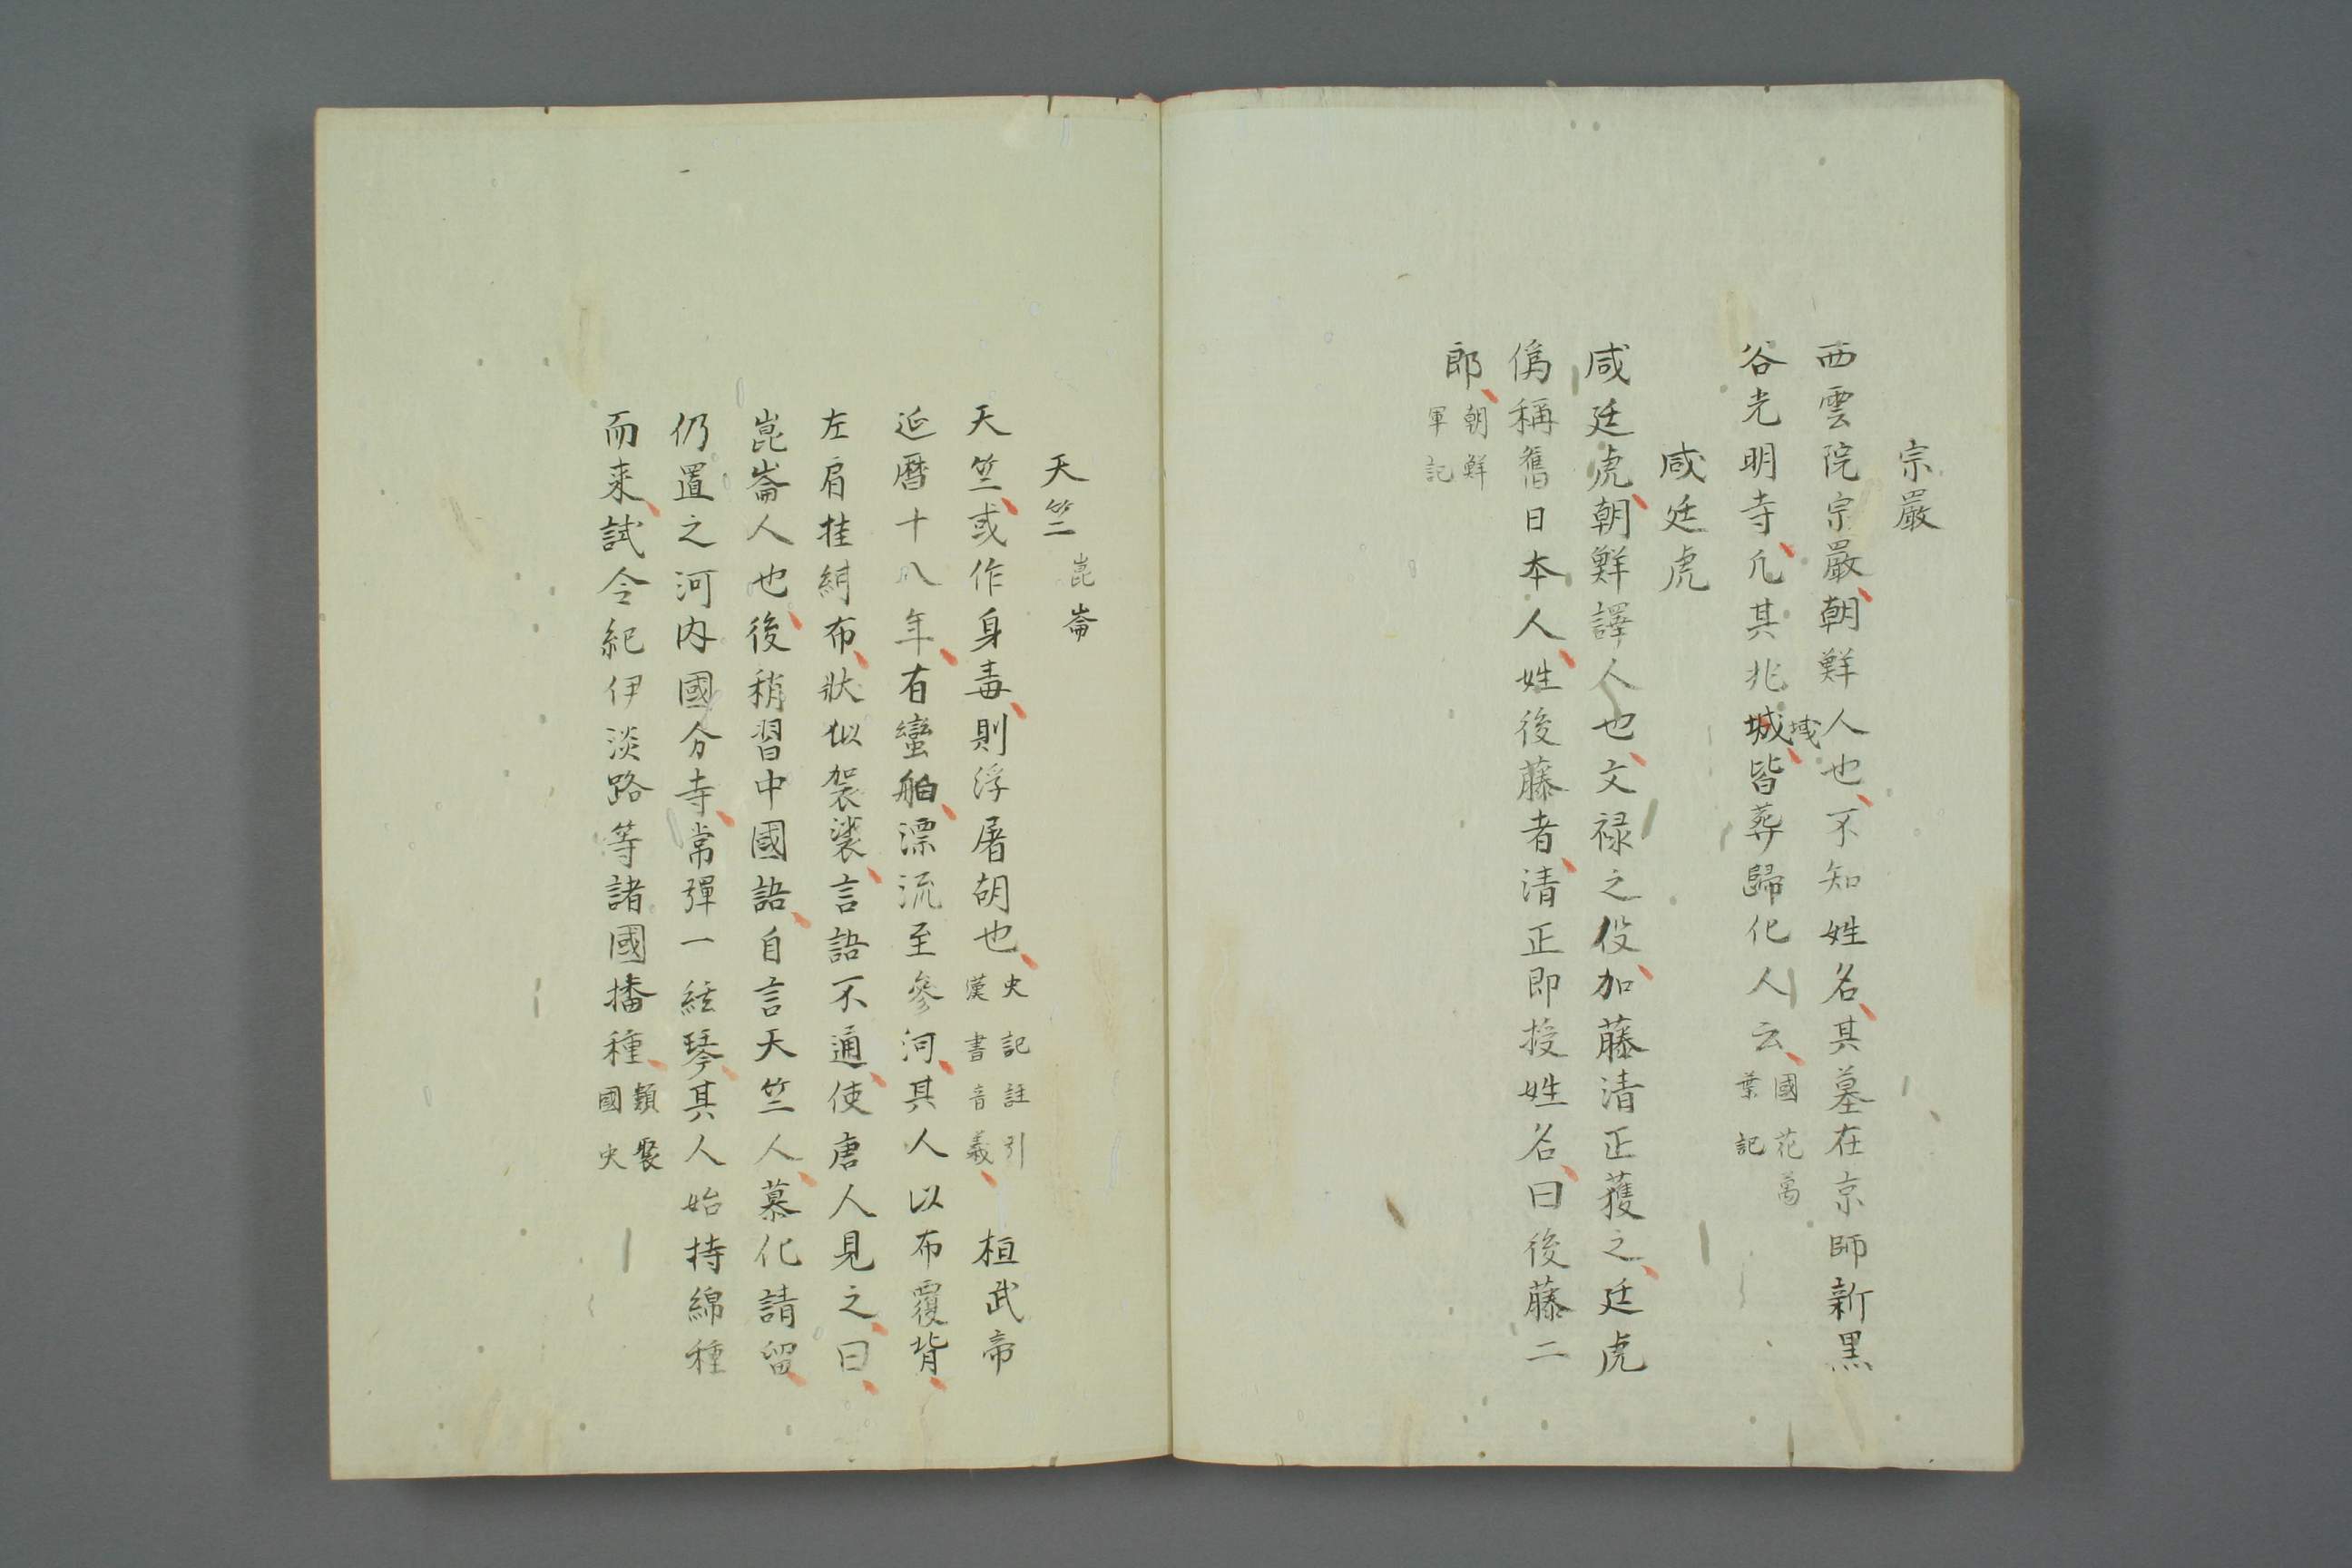 宗嚴
西雲院宗嚴朝鮮人也不知姓名其墓在京師新黒
谷光明寺凡其兆城皆葬歸化人云國花萬葉記
域
咸廷虎
咸廷虎朝鮮譯人也文禄之役加藤清正獲之廷虎
僞稱舊日本人姓後藤者清正即授姓名曰後藤二
郎朝鮮軍記
天竺崑崙
天竺或作身毒則浮屠胡也史記註引漢書音義桓武帝
延暦十八年有蠻舶漂流至參河其人以布覆背
左肩挂絹布狀似袈裟言語不通使唐人見之曰
崑崙人也後稍習中國語自言天竺人慕化請留
仍置之河内國分寺常彈一絃琴其人始持綿種
而来試令紀伊淡路等諸國播種類聚國史